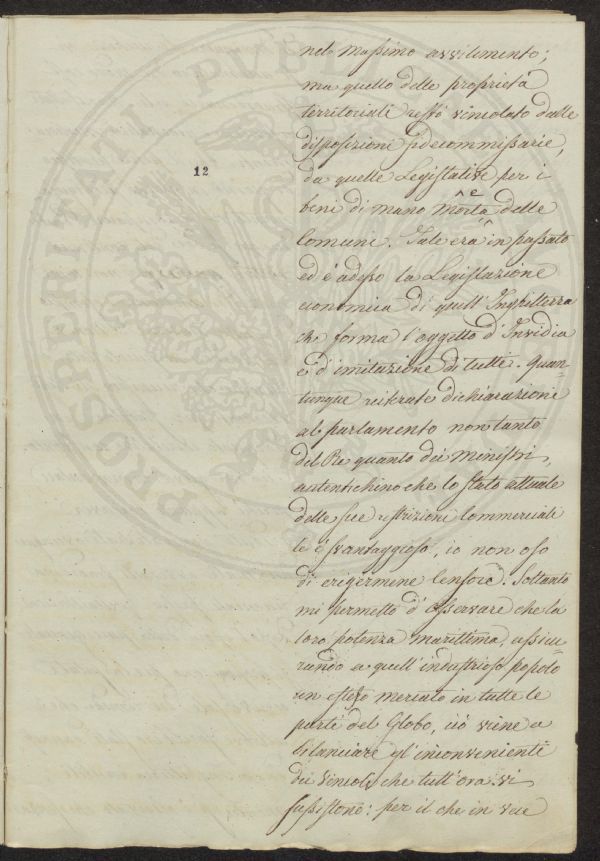 12
nel massimo avvilimento;
ma quello delle proprietà
territoriali restò vincolato dalle
disposizioni fidecommissarie,
da quelle Legislative per i
beni di mano morta e delle
Comuni. Tale era in passato
ed è adesso la Legislazione
economica di quell'Inghilterra
che forma l'oggetto d'Invidia
e d'imitazione di tutti. Quan-
tunque reiterate dichiarazioni
al parlamento non tanto
del Re quanto dei Ministri,
autentichino che lo stato attuale
delle sue restrizioni Commerciali
le è svantaggioso, io non oso
di erigermine Censore. Soltanto
mi permetto d'osservare che la
loro potenza marittima, assicu-
rando a quell'industrioso popolo
un esteso mercato in tutte le
parti del Globo, ciò viene a
bilanciare gl'inconvenienti
dei vincoli che tutt'ora vi
sussistono: per il che in vece
PROSPERITATI PVBLI